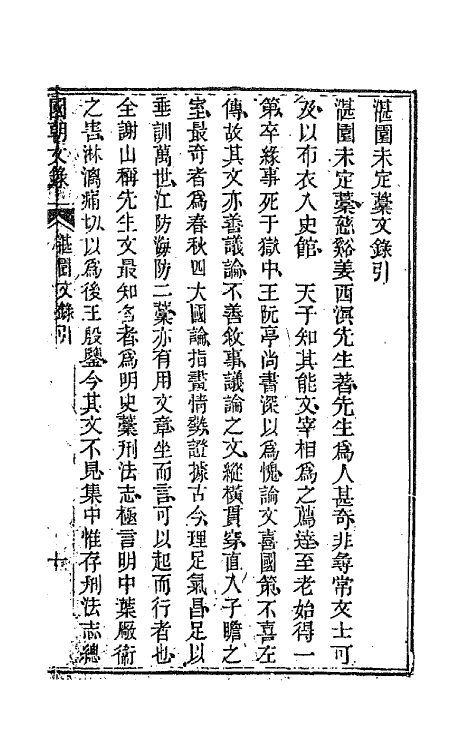 湛園未定藁文錄引
湛園未定藁慈谿姜西溟先生著先生爲人甚奇非尋常文士可
及以布衣入史館　天子知其能文宰相爲之薦達至老始得一
第卒緣事死于獄中王阮亭尚書深以爲愧論文喜國策不喜左
傳故其文亦善議論不善敘事議論之文縱橫貫穿直入子瞻之
室最奇者爲春秋四大國論指畫情勢證據古今理足氣昌足以
垂訓萬世江防海防二藁亦有用文章坐而言可以起而行者也
全謝山稱先生文最知名者爲明史藁刑法志極言明中葉廠衞
之害淋漓痛切以爲後王殷鑒今其文不見集中惟存刑法志總
國朝文錄　湛園文錄引　十